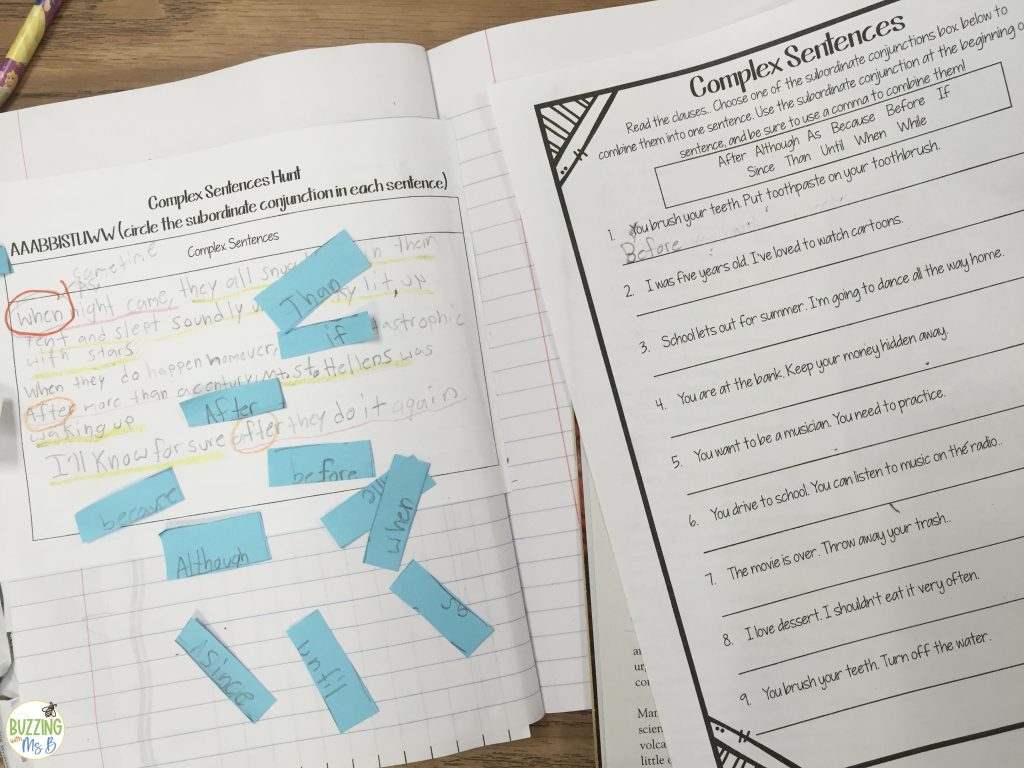 Complex Sentences Hunt
AAABBISTUWW (circle the subordinate conjunction in each sentence)
Complex Sentences
Sometime
When night came, they all in their
tent and slept soundly lit up
with stars.
When they do happen however, if
After more than a century, Mt. St. Hellens was
waking up
I'll know for sure after they do it again
Than
if
After
before
because
when
Although
as
since
until
BUZZING
with
Ms. B
Complex Sentences
Read the clauses.. Choose one of the subordinate conjunctions box below to
combine them into one sentence. Use the subordinate conjunction at the beginning
sentence, and be sure to use a comma to combine them!
After Although As Because Before If
Since Than Until When While
1. You brush your teeth. Put toothpaste on your toothbrush.
Before
2. I was five years old. I've loved to watch cartoons.
3. School lets out for summer. I'm going to dance all the way home.
4. You are at the bank. Keep your money hidden away.
5. You want to be a musician. You need to practice.
6. You drive to school. You can listen to music on the radio..
7. The movie is over. Throw away your trash..
8. I love dessert. I shouldn't eat it very often.
9. You brush your teeth. Turn off the water.